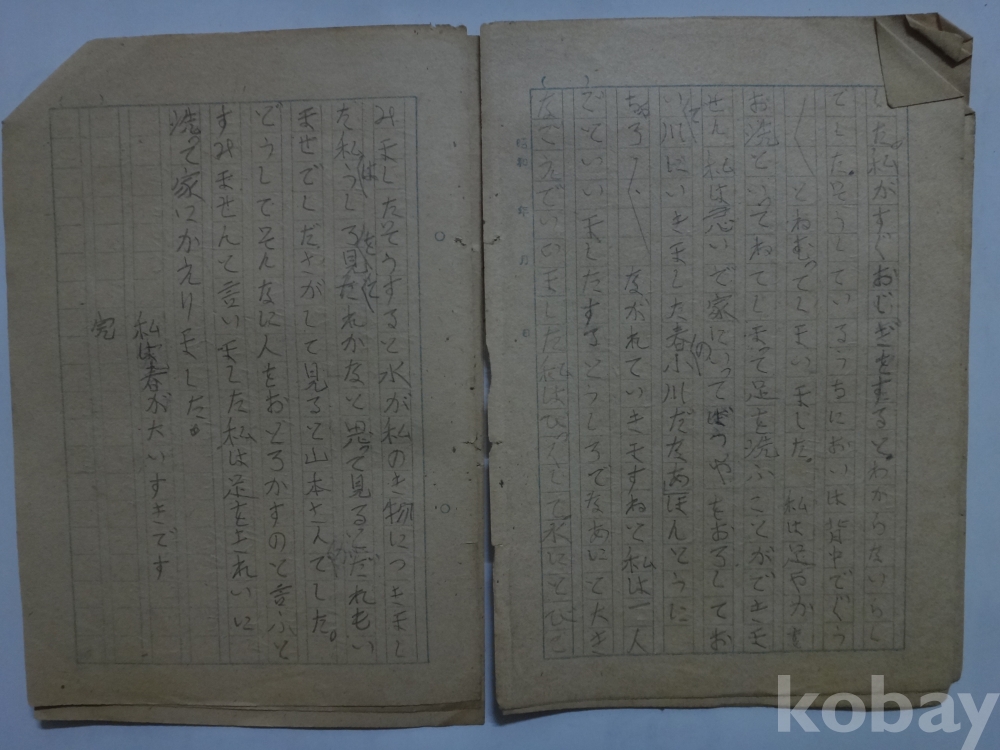 した私がすぐおじぎをすると。わからないらし
でした。そうしているうちにおいは背中でぐう
〱とねむってしまいました。 私は足やかを
お洗といってねてしまって足を洗ふことができま
せん私は急いで家にいってぼうやをおろしてお
川にいきました春の小川だなあほんとうに
ちょろ〱ながれていきますねと私は一人
ごといいましたするとうしろでなあにと大き
なこえでいいました私はびっくりして
みましたそうすると水が私のき物につきまし
た私はうしろを見てだれかなと思って見るとだれもい
ませでしたさがして見ると山本さんでした。
どうしてそんなに人をおどろかすのと言ふと
すみませんと言いました私は足をきれいに
洗って家にかえりました。
私は春が大いすきです
完
昭和 年 月 日
kobay